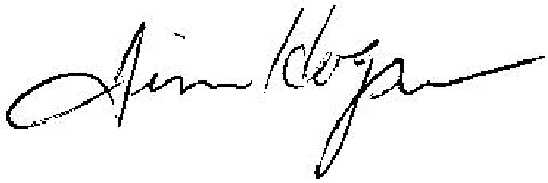 Jim Hogan